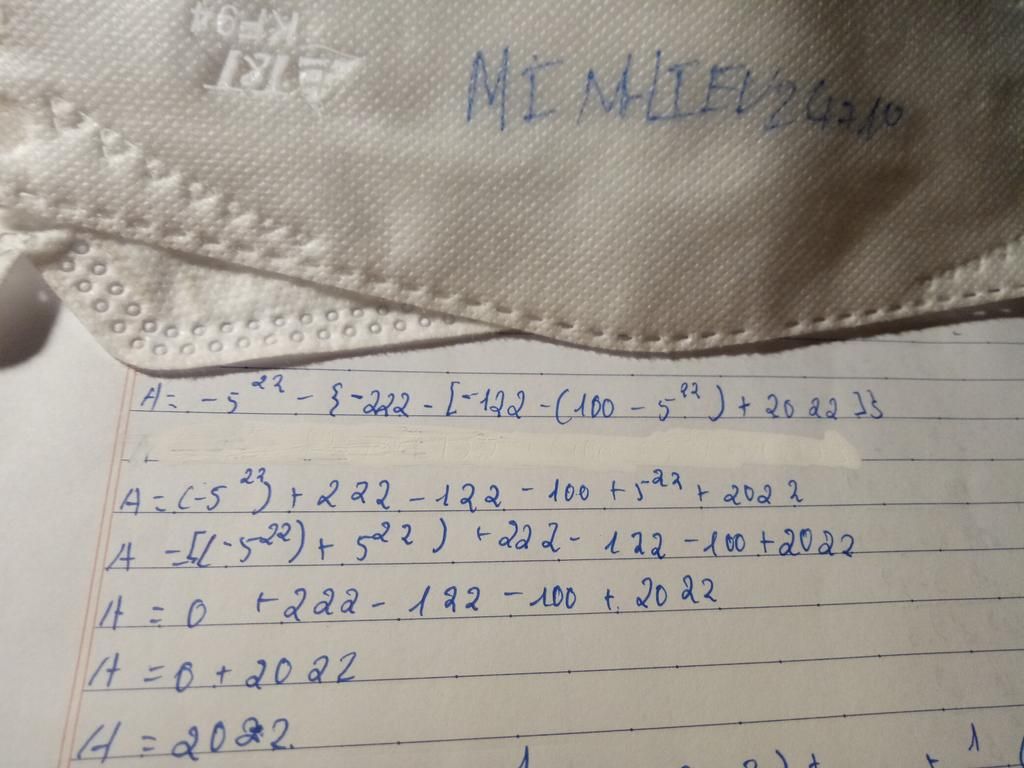 KF94
MINHLIEV24710
A = -5²² - {-222 - [-122 - (100 - 5²²) + 2022]}
A = (-5²²) + 222 - 122 - 100 + 5²² + 2022
A = [(-5²²) + 5²²) + 222 - 122 - 100 + 2022
A = 0 + 222 - 122 - 100 + 2022
A = 0 + 2022
A = 2022.